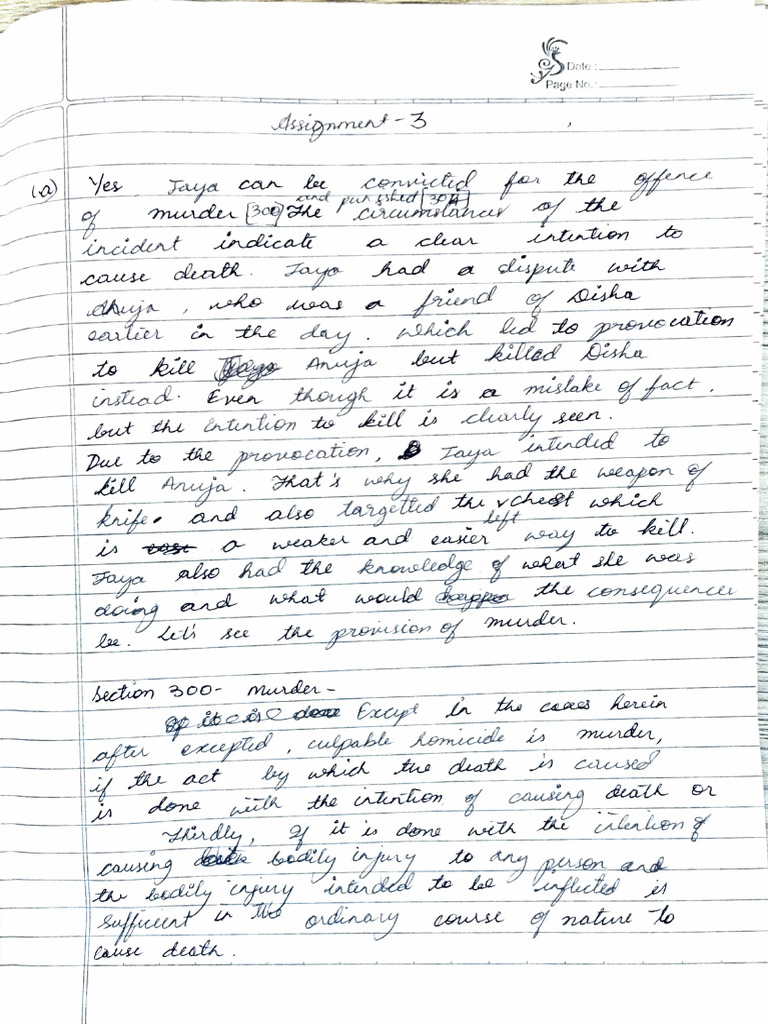 Date :
Page No.:
Assignment - 3
(a) Yes Jaya can be convicted for the offence
and punished [302]
of murder [300] The circumstances of the
incident indicate a clear intention to
cause death. Jaya had a dispute with
Anuja, who was a friend of Disha
earlier in the day. Which led to provocation
to kill Anuja but killed Disha
instead. Even though it is a mistake of fact,
but the intention to kill is clearly seen.
Due to the provocation, Jaya intended to
kill Anuja. That's why she had the weapon of
knife. and also targetted the left chest which
is a weaker and easier way to kill.
Jaya also had the knowledge of what she was
doing and what would the consequences
be. Let's see the provision of murder.
Section 300- Murder-
Except in the cases herein
after excepted, culpable homicide is murder,
if the act by which the death is caused
is done with the intention of causing death or
Thirdly, If it is done with the intention of
causing bodily injury to any person and
the bodily injury intended to be inflicted is
sufficent in the ordinary course of nature to
cause death.